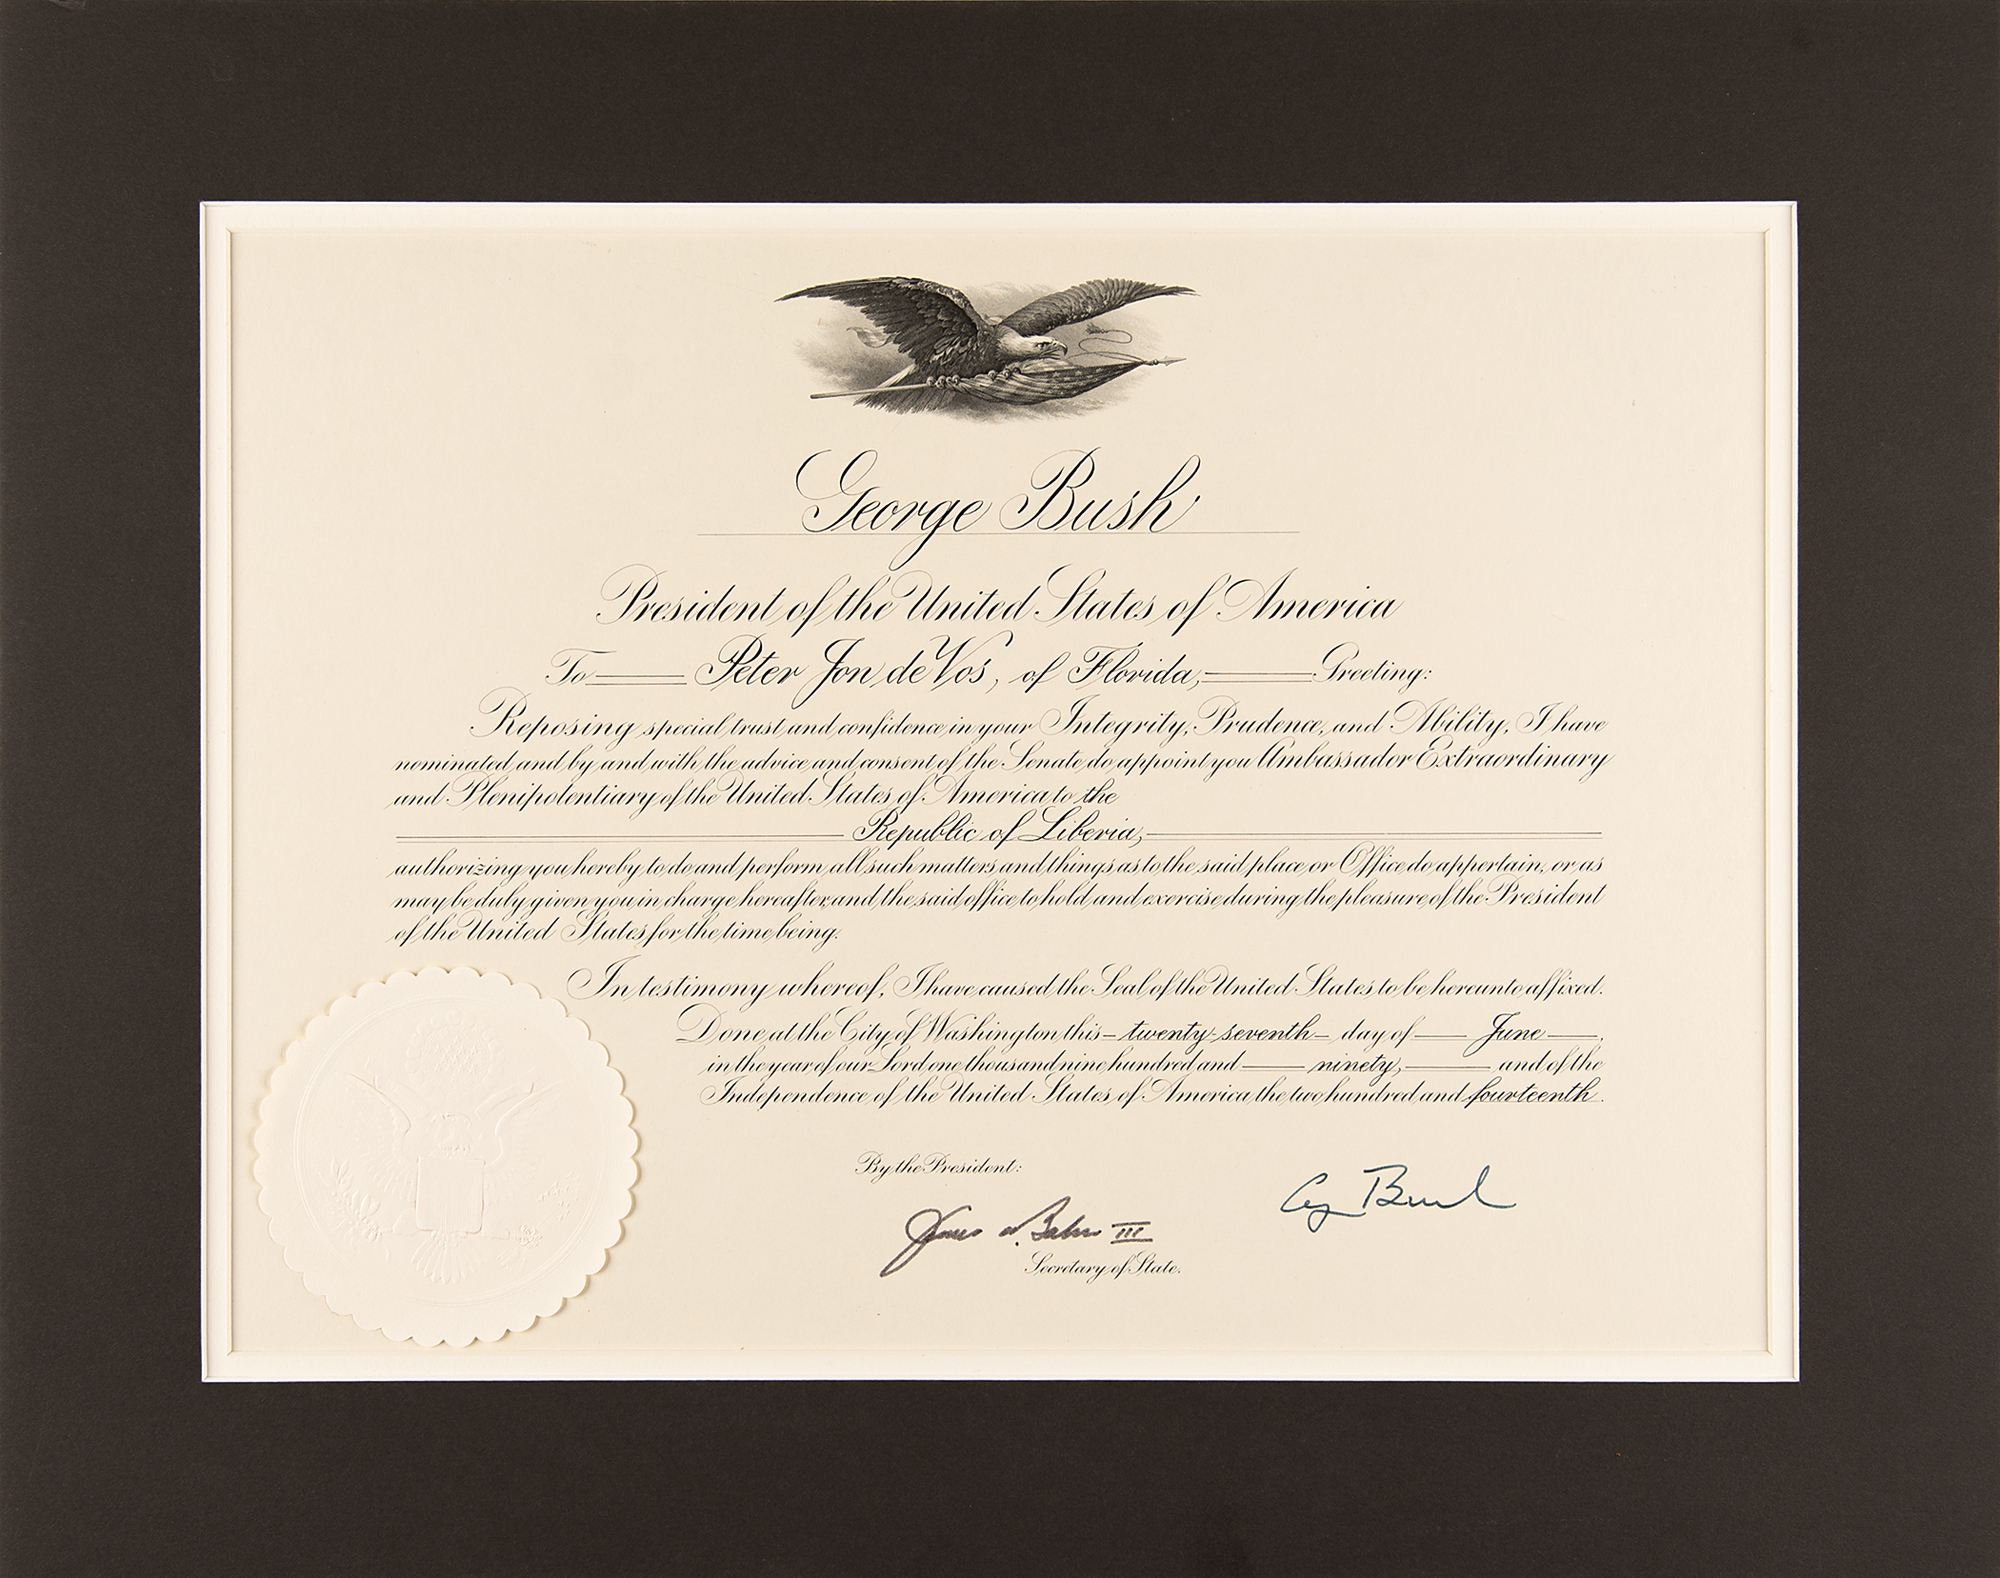 George Bush
President of the United States of America
To Peter Jon de Vos, of Florida, Greeting:
Reposing special trust and confidence in your Integrity, Prudence, and Ability, I have
nominated and by and with the advice and consent of the Senate do appoint you Ambassador Extraordinary
and Plenipotentiary of the United States of America to the
Republic of Liberia,
authorizing you hereby to do and perform all such matters and things as to the said place or Office do appertain, or as
may be duly given you in charge hereafter, and the said office to hold and exercise during the pleasure of the President
of the United States for the time being.
In testimony whereof, I have caused the Seal of the United States to be hereunto affixed.
Done at the City of Washington this twenty-seventh day of June,
in the year of our Lord one thousand nine hundred and ninety, and of the
Independence of the United States of America the two hundred and fourteenth.
By the President:
G Bush
James A. Baker III
Secretary of State.